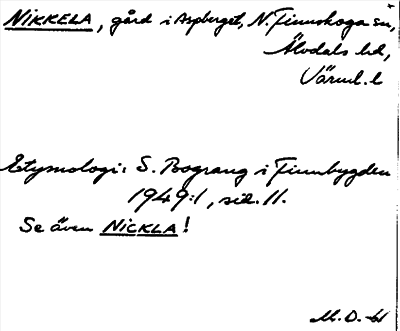 NIKKELA, gård i Aspberget, N. Finnskoga sn,
Älvdals hd,
Värml. l
Etymologi: S. Bograng i Finnbygden
1949:1, sid. 11.
Se även NICKLA!
M. D.-H